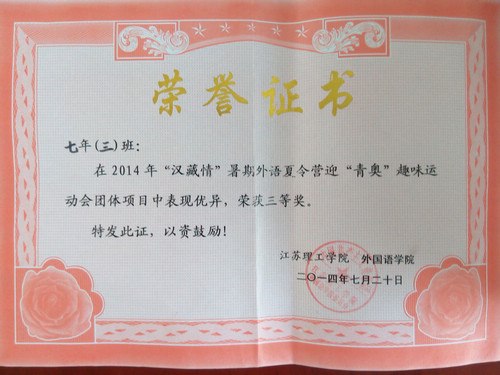 荣誉证书
七年(三)班：
在2014年“汉藏情”暑期外语夏令营迎“青奥”趣味运
动会团体项目中表现优异，荣获三等奖。
特发此证，以资鼓励！
江苏理工学院 外国语学院
二〇一四年七月二十日